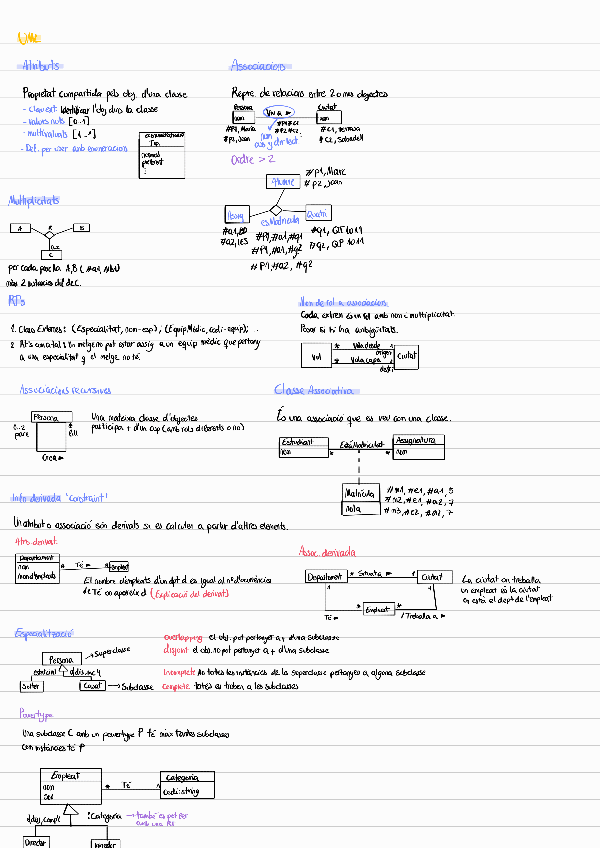 UML
Atributs
Propietat compartida pels obj. d'una classe
- Clau ext: Identificar l'obj dins la classe
- Valors nuls [0..1]
- multivaluats [1..*]
- Def. per user amb enumeracion
<<enumeration>>
Tipus
normal
:
Associacions
Repre. de relacions entre 2 o més objectes
Persona
nom
Viu a ►
Ciutat
nom
#P1, Maria
#p2, Joan
#P1#C1
#P2#C2
#C1, Terrassa
#C2, Sabadell
nom
Ordre > 2
Alumne
#p1, Marc
#p2, Joan
Assig
esMatricula
Quatri
#a1, BD
#a2, IES
#P1, #a1, #q1
#P1, #a1, #q2
#P1, #a2, #q2
#q1, QT 1019
#q2, QP 1011
Multiplicitats
A
R
B
C
per cada parella A,B (#a1, #b1)
màx 2 instàncies del de C.
RTs
1. Claus Externes: (Especialitat, nom-esp); (Equip Mèdic, codi-equip);
2. Un metge no pot estar assig. a un equip mèdic que pertany
a una especialitat q el metge no té.
Nom de rol a associacions
Cada extrem és un rol amb nom i multiplicitat
Posar si hi ha ambigüitats.
Vol
*
Vol a desde
origen
*
Vol a cap a
destí
Ciutat
Associacions recursives
Persona
0..2
pare
*
fill
Crea ►
Una mateixa classe d'objectes
participa + d'un cop (amb rols diferents o no)
Classe Associativa
És una associació que es veu com una classe.
Estudiant
nom
*
EstàMatriculat
*
Assignatura
nom
Matrícula
nota
#m1, #e1, #a1, 5
#m2, #e1, #a2, 7
#m3, #e2, #a2, 7
Info derivada 'constraint'
Un atribut o associació són derivats si es calculen a partir d'altres elements.
Atrs. derivat:
Departament
nom
*
Té ►
Empleat
El nombre d'empleats d'un dpt d es igual al nº d'ocurrències
de Té on apareix d (Explicació del derivat)
Assoc. derivada
Departament
*
Situat a ►
1
Ciutat
1
Té ►
*
Empleat
*
/Treballa a ►
La ciutat on treballa
un empleat és la ciutat
on està el dept de l'empleat
Especialització
Persona
Superclasse
Solter
Casat
Subclasse
Overlapping el obj. pot pertanyer a + d'una subclasse
disjoint el obj. no pot pertanyer a + d'una subclasse
Incomplete No totes les instàncies de la superclasse pertanyen a alguna subclasse
Complete Totes es troben a les subclasses
Powertype
Una subclasse C amb un powertype P té màx tantes subclasses
com instàncies té P
Empleat
nom
sou
*
Té ►
Categoria
codi: string
{disj, compl}
:Categoria
també es pot fer
amb una RT
Director